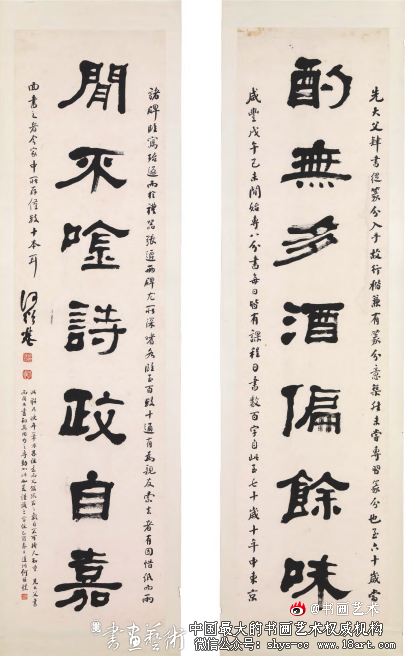 先大父肄書從篆分入手故行楷兼有篆分意然未嘗專習篆分也至六十歲當
酌無多酒偏餘味
咸豐戊午己未間始專八分書每日皆有課程日書數百字自此至七十歲十年中東京
諸碑臨寫殆遍而於禮器張遷兩碑尤所深嗜各臨至百數十通有為親友索去者有因惜紙而兩
閒不唫詩政自嘉
面書之者今家中所存僅數十本耳
何維樸
@书画艺术
書畫藝術
中国最大的书画艺术权威机构
微信公众名: shys-oc | www.18art.com